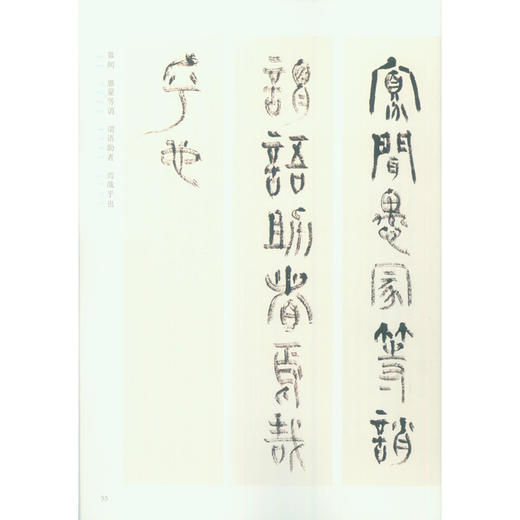 寡聞愚蒙等誚
謂語助者焉哉
乎也
寡闻 愚蒙等诮 谓语助者 焉哉乎也
55